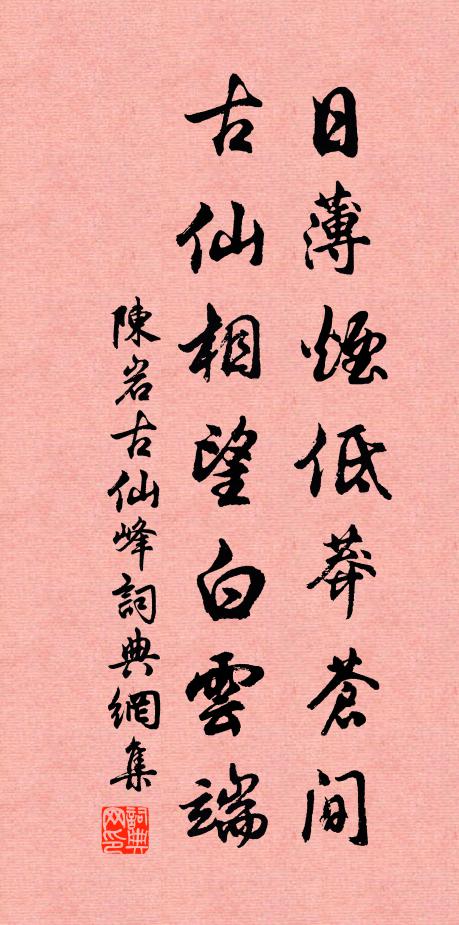 日薄煙低莽蒼間
古仙相望白雲端
陳岩古仙峰詞典網集
詞典网印